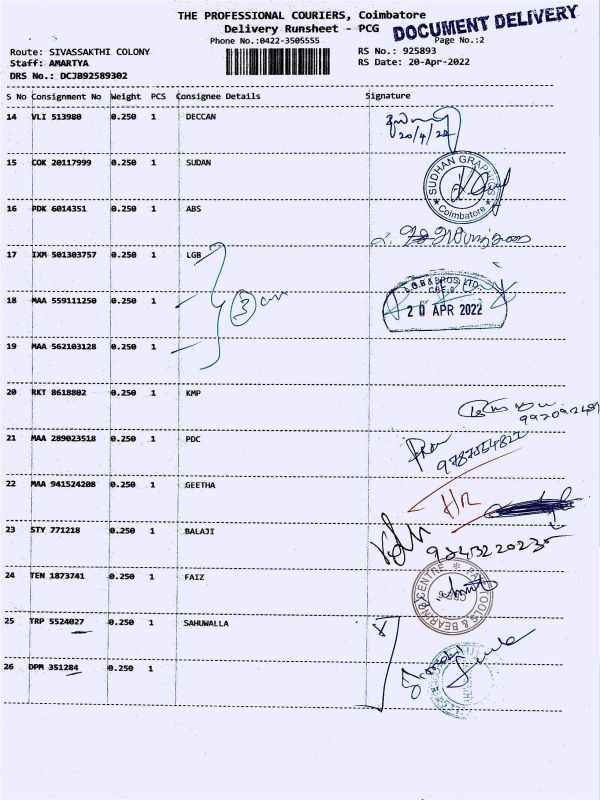 THE PROFESSIONAL COURIERS, Coimbatore
Delivery Runsheet - PCG
DOCUMENT DELIVERY
Phone No.:0422-3505555
Page No.:2
Route: SIVASSAKTHI COLONY
RS No.: 925893
Staff: AMARTYA
RS Date: 20-Apr-2022
DRS No.: DCJB92589302
S No Consignment No Weight PCS Consignee Details Signature
14 VLI 513980 0.250 1 DECCAN
20/4/22
15 COK 20117999 0.250 1 SUDAN
SUDHAN GRAPHICS
Coimbatore
16 PDK 6014351 0.250 1 ABS
17 IXM 501303757 0.250 1 LGB
L.G.B & BROS. LTD.
18 MAA 559111250 0.250 1
3
20 APR 2022
19 MAA 562103128 0.250 1
20 RKT 8618802 0.250 1 KMP
21 MAA 289023518 0.250 1 PDC
22 MAA 941524208 0.250 1 GEETHA
HR
23 STY 771218 0.250 1 BALAJI
24 TEN 1873741 0.250 1 FAIZ
TOOLS & BEARING CENTRE
25 TRP 5524027 0.250 1 SAHUWALLA
26 DPM 351284 0.250 1